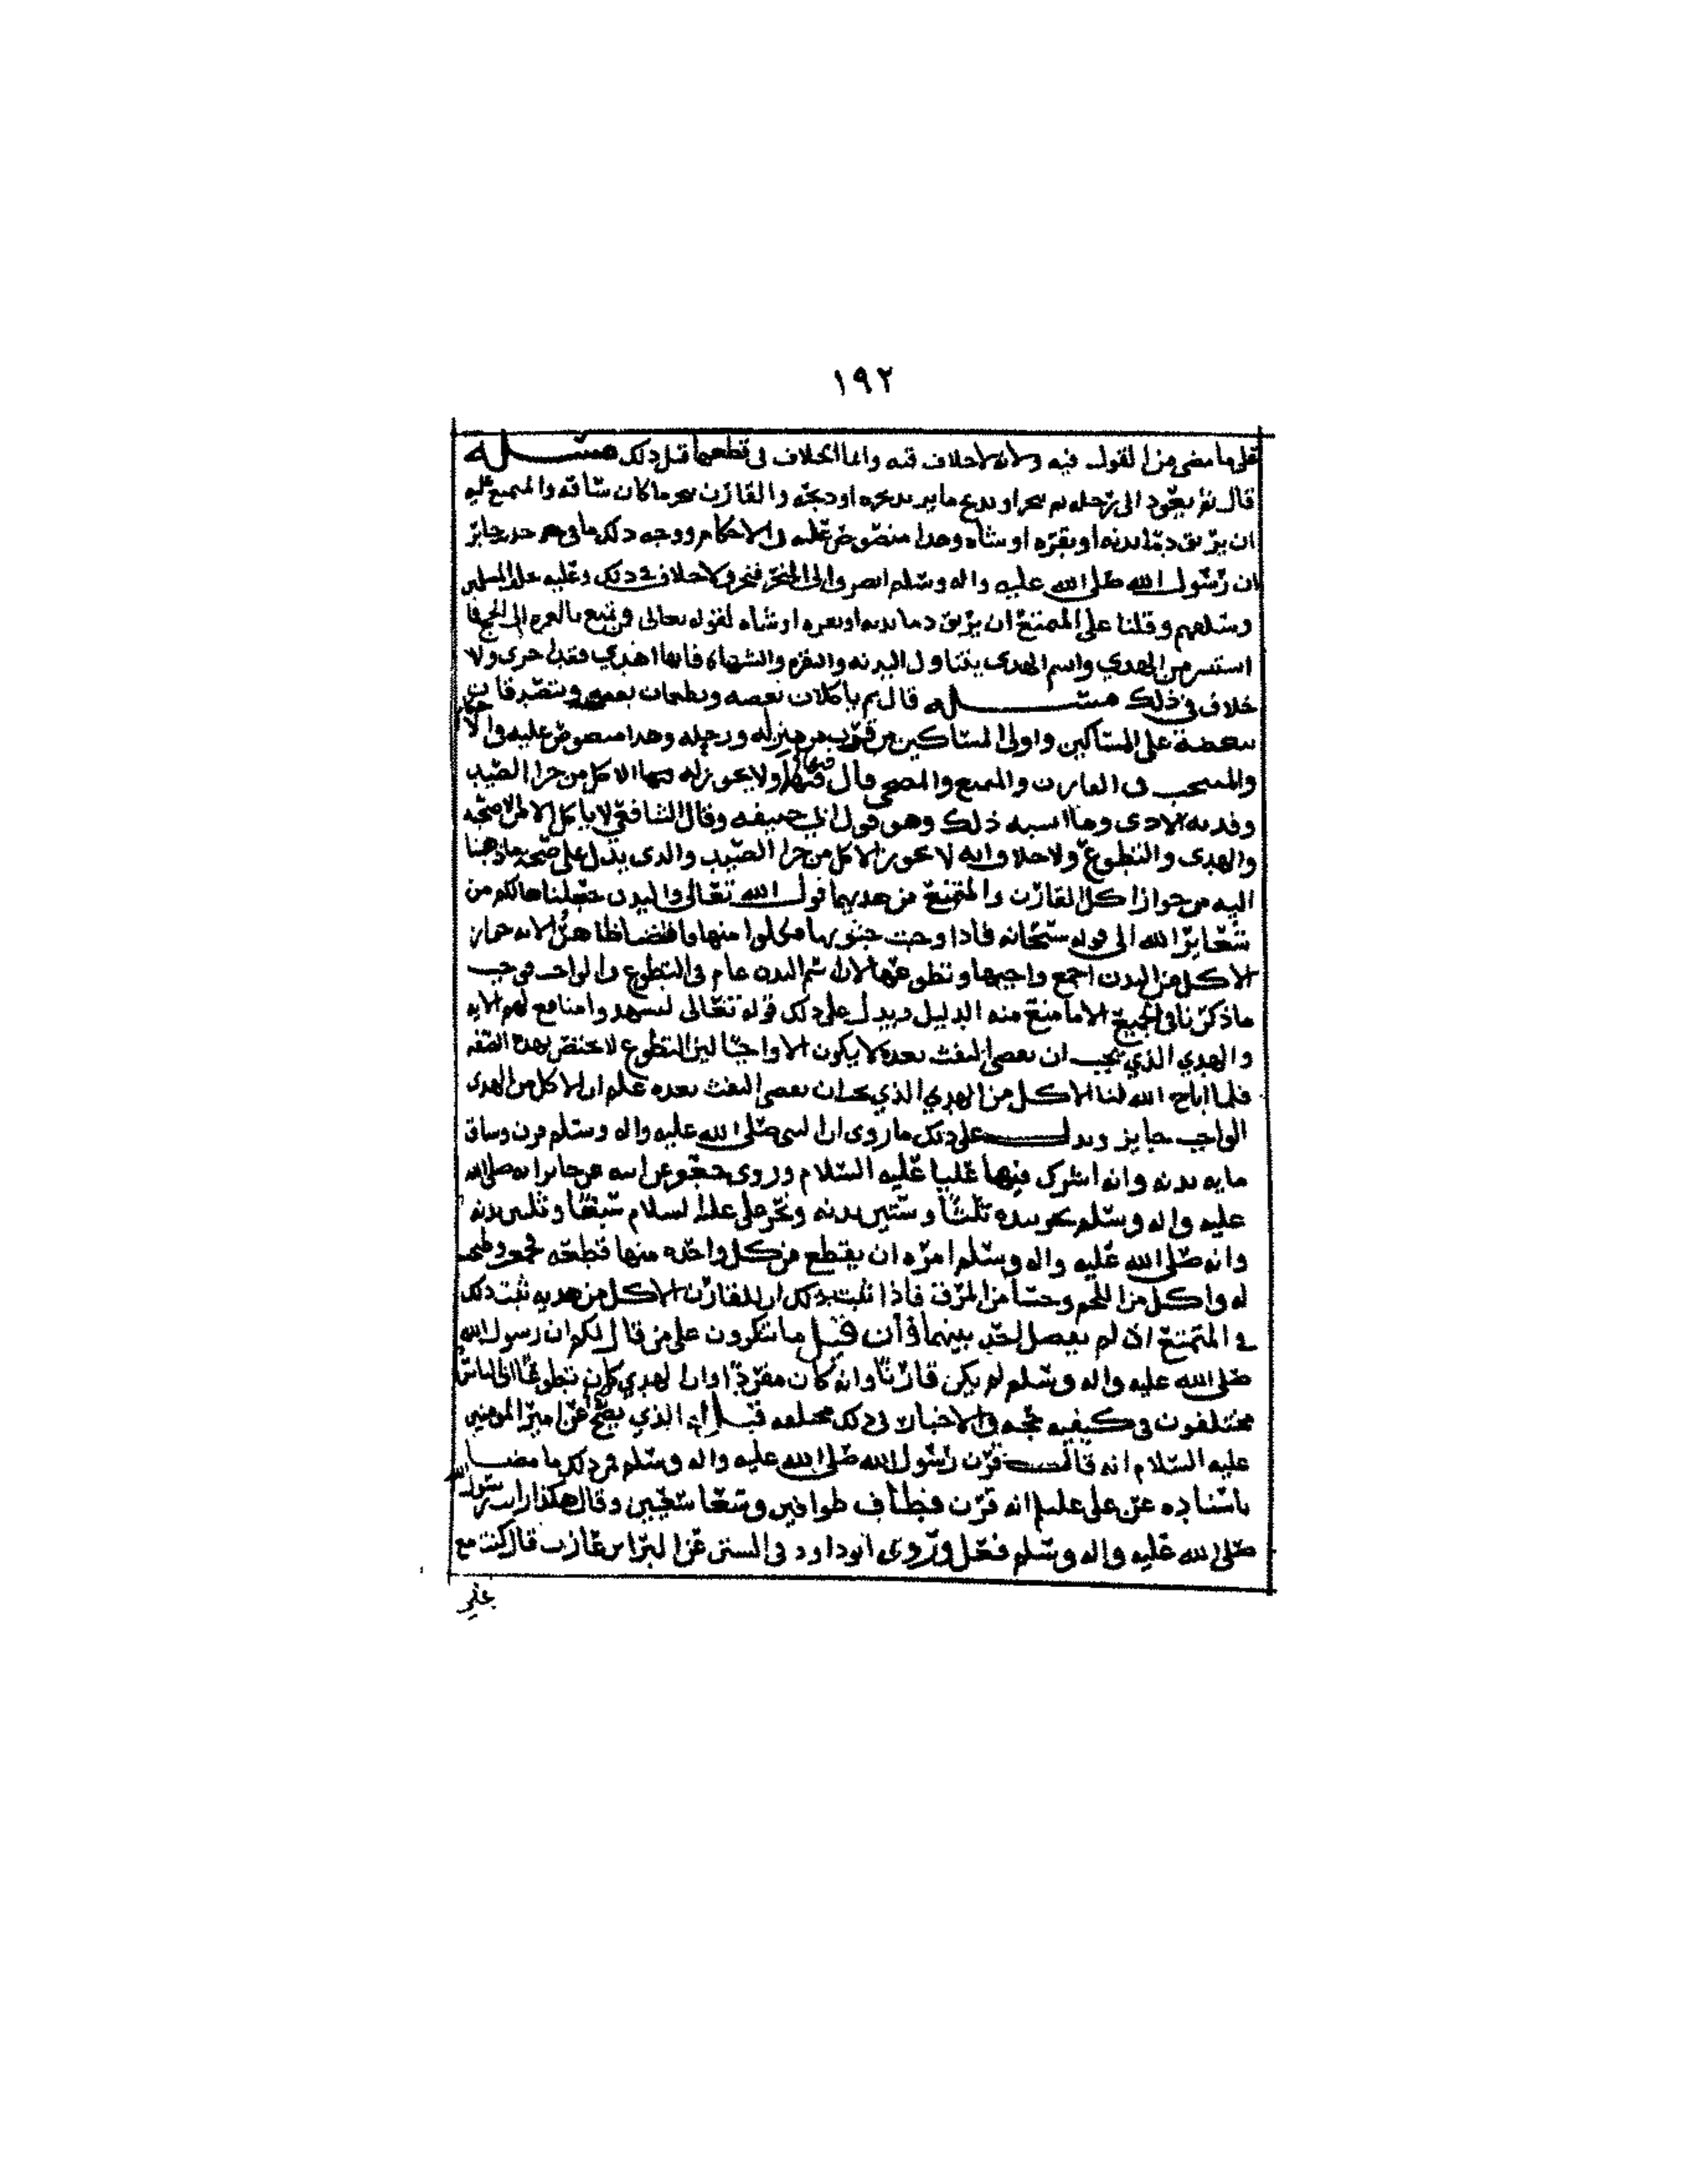 ١٩٢
على ما مضى من القول فيه ولانه لاخلاف فيه وانما الخلاف في قطعهما قبل ذلك مسئلة
قال ثم يعود الى رحله ثم ينحر او يذبح ما يريد نحره او ذبحه والقارن ينحر ما كان ساقه والمتمتع عليه
ان يريق دما بدنة او بقرة او شاة وهذا منصوص عليه في الاحكام ووجه ذلك ما في حديث جابر
ان رسول الله صلى الله عليه واله وسلم انصرف الى المنحر فنحر ولاخلاف في ذلك وعليه عمل المسلمين
وقلنا على المتمتع ان يريق دما بدنة او بقرة او شاة لقوله تعالى فمن تمتع بالعمرة الى الحج فما
استيسر من الهدي واسم الهدي يتناول البدنة والبقرة والشاة فايها اهدي فقد اجزى ولا
خلاف في ذلك مسئلة قال ثم ياكلان بعضه ويطعمان بعضه ويتصدقان
ببعضه على المساكين واولى المساكين من قرب من منزله ورحله وهذا منصوص عليه في الاحكام
والمنتخب في القارن والمتمتع والمضحي قال فيهما ولا يجوز له فيها الاكل من جزا الصيد
وفدية الاذى وما اشبه ذلك وهو قول ابي حنيفه وقال الشافعي لا ياكل الا من الاضحيه
والهدي والتطوع ولا خلاف انه لا يجوز الاكل من جزا الصيد والذي يدل على صحة ما ذهبنا
اليه من جواز اكل القارن والمتمتع من هديهما قول الله تعالى والبدن جعلناها لكم من
شعاير الله الى قوله سبحانه فاذا وجبت جنوبها فكلوا منها فاقتضا ظاهر الايه جواز
الاكل من البدن اجمع واجبها وتطوعها لان اسم البدن عام في التطوع والواجب فوجب
ما ذكرنا في الجميع الا ما منع منه الدليل ويدل على ذلك قوله تعالى ليشهدوا منافع لهم الايه
والهدي الذي يجب ان يقضى التفث بعده لا يكون الا واجبا لان التطوع لا يختص بهذه الصفه
فلما اباح الله لنا الاكل من الهدي الذي يجب ان يقضى التفث بعده علم ان الاكل من الهدي
الواجب جايز ويدل على ذلك ما روى ان النبي صلى الله عليه واله وسلم قرن وساق
مايه بدنه وانه اشرك فيها عليا عليه السلام وروى جعفر عن ابيه عن جابر انه صلى الله
عليه واله وسلم نحر بيده ثلثا وستين بدنه ونحر علي عليه السلام سبعا وثلثين بدنه
وانه صلى الله عليه واله وسلم امره ان يقتطع من كل واحده منها قطعه فجمع وطبخ
له واكل من اللحم وحسا من المرق فاذا ثبت بذلك ان للقارن الاكل من هديه ثبت ذلك
في المتمتع اذ لم يفصل احد بينهما فان قيل ما تنكرون على من قال لكم ان رسول الله
صلى الله عليه واله وسلم لم يكن قارنا وانه كان مفردا وان الهدي كان تطوعا اذ الناس
مختلفون في كيفيه حجه والاخبار في ذلك مختلفه قيل له الذي يصح عن امير المومنين
عليه السلام انه قال قرن رسول الله صلى الله عليه واله وسلم فمن ذلك ما مضى
باسناده عن علي عليلم انه قرن فطاف طوافين وسعا سعيين وقال هكذا رايت رسول الله
صلى الله عليه واله وسلم فعل وروى ابو داود في السنن عن البرا بن عازب قال كنت مع
علي